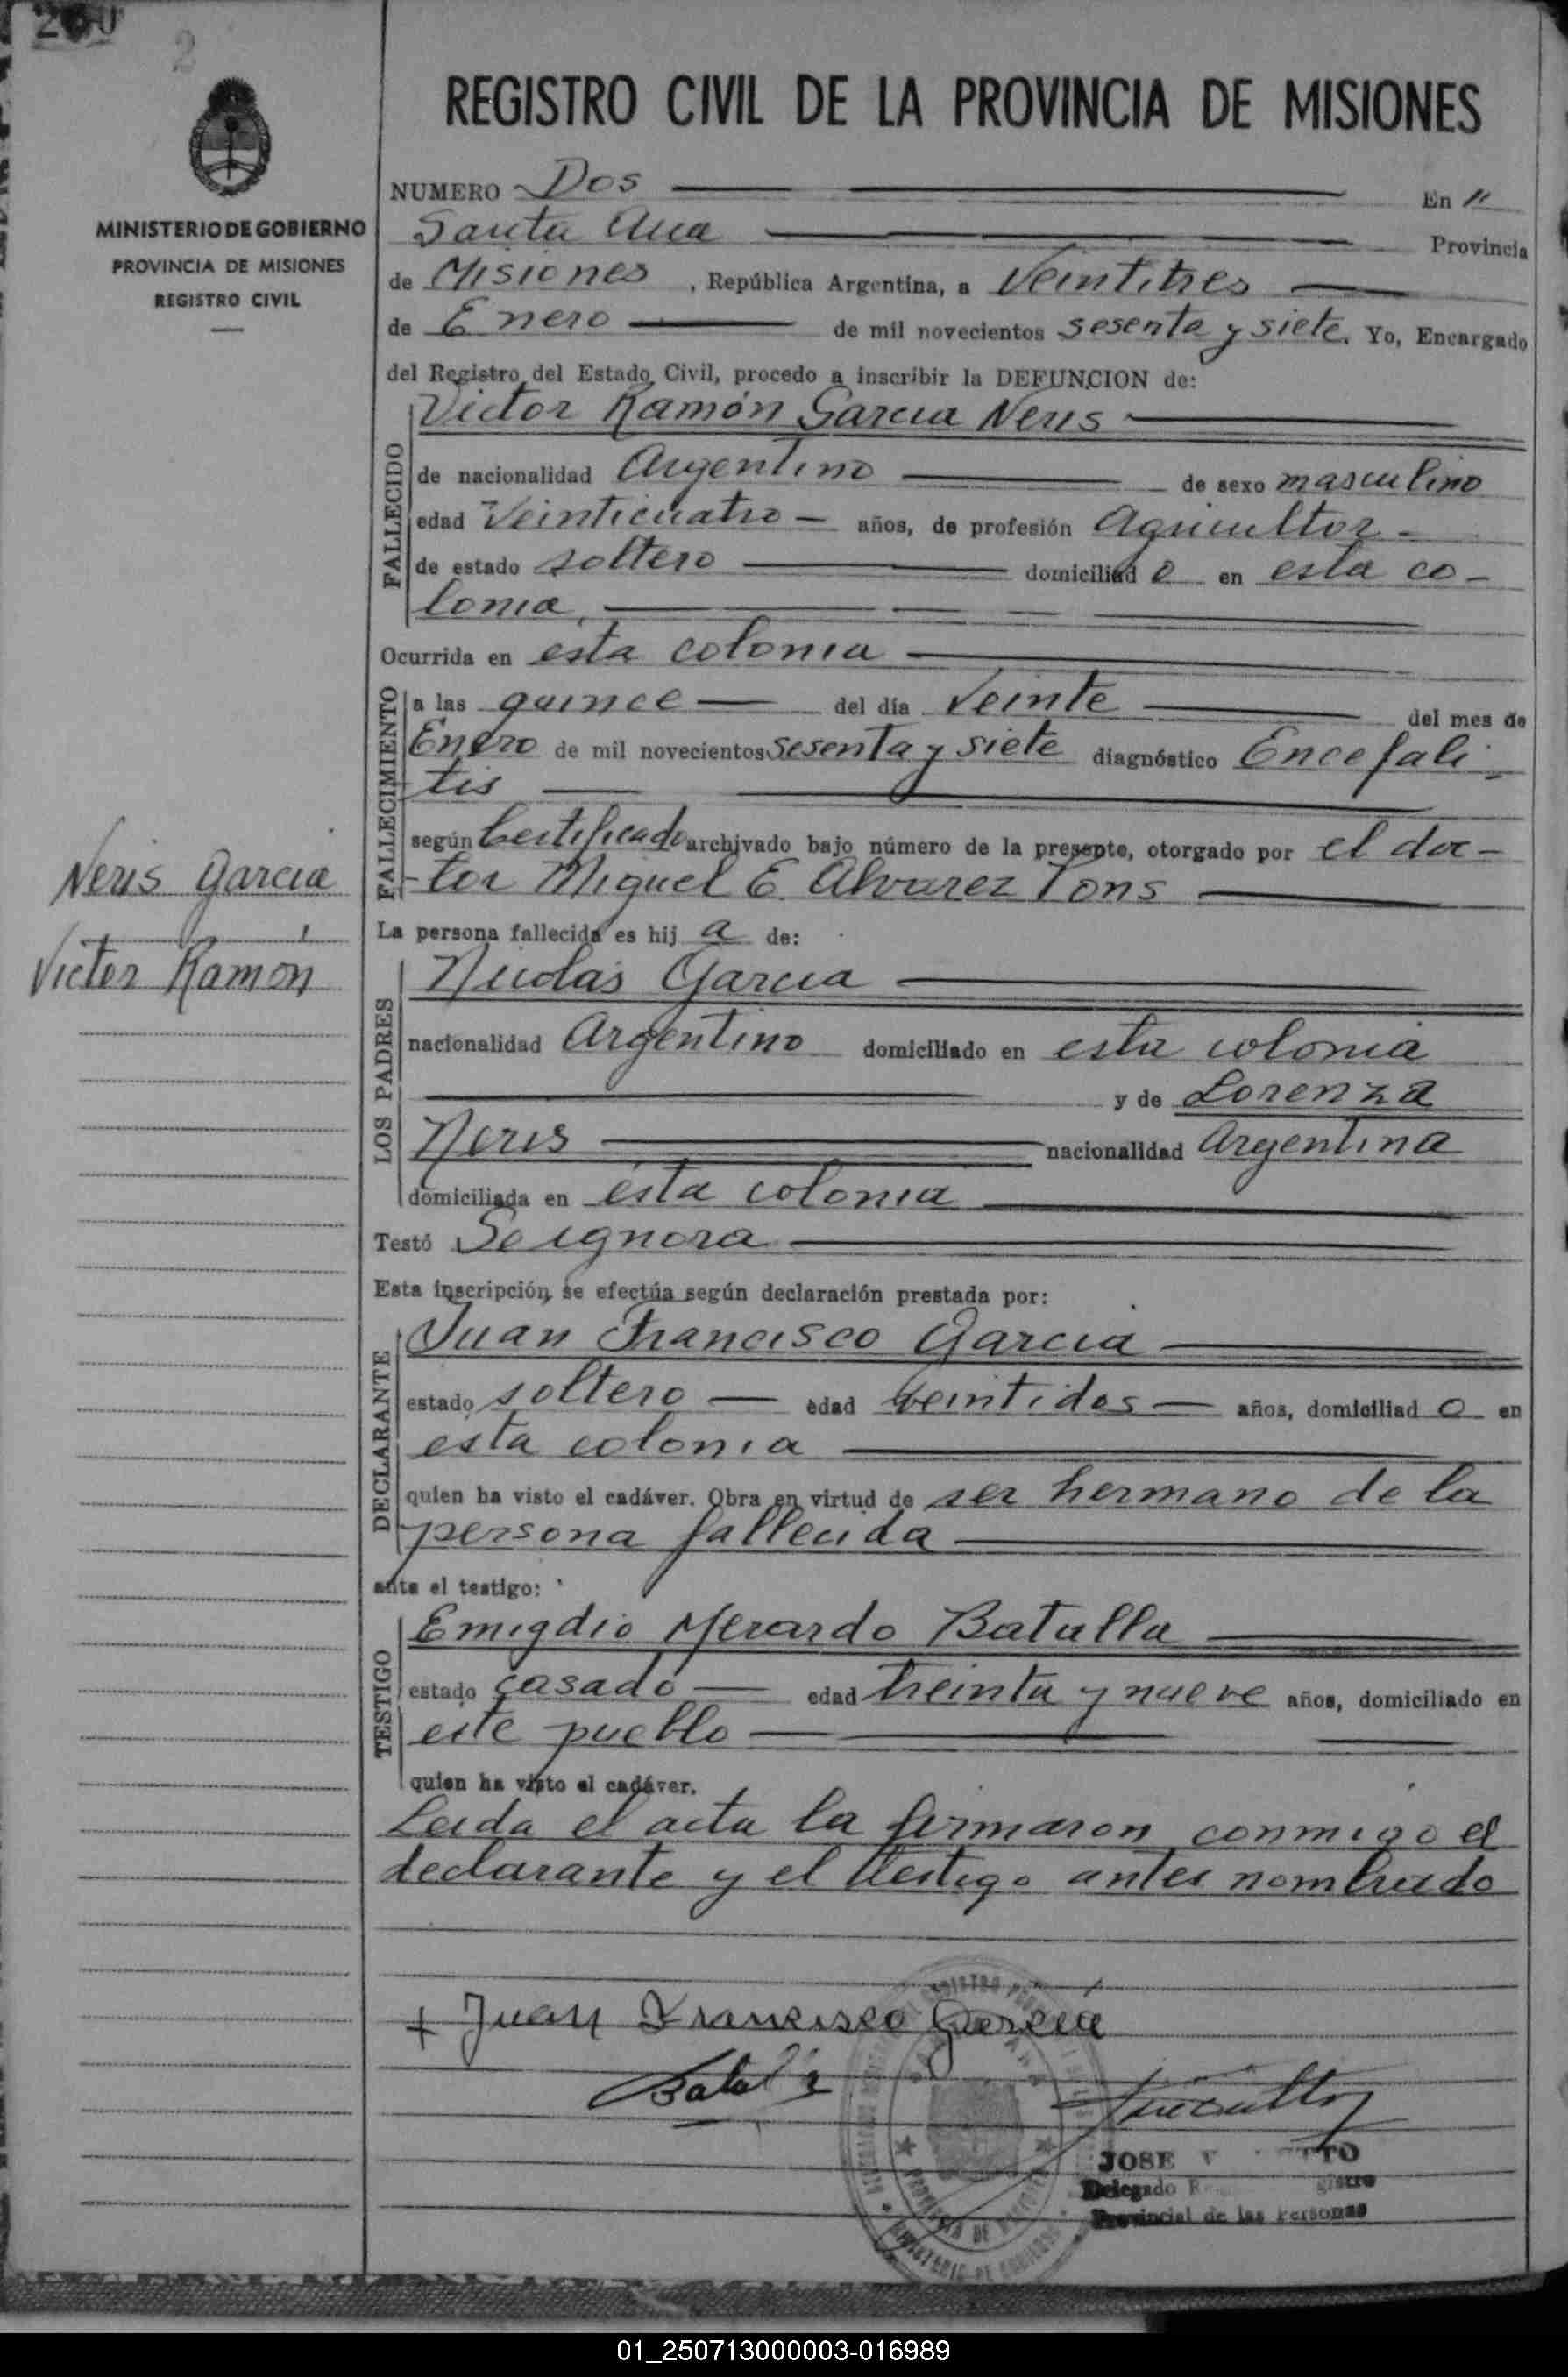 2
REGISTRO CIVIL DE LA PROVINCIA DE MISIONES
MINISTERIO DE GOBIERNO
PROVINCIA DE MISIONES
REGISTRO CIVIL
NUMERO Dos En "
Santa Ana Provincia
de Misiones, República Argentina, a Veintitres
de Enero de mil novecientos sesenta y siete. Yo, Encargado
del Registro del Estado Civil, procedo a inscribir la DEFUNCION de:
FALLECIDO
Victor Ramón Garcia Neris
de nacionalidad Argentino de sexo masculino
edad Veinticuatro años, de profesión Agricultor
de estado soltero domiciliad o en esta co-
lonia,
Ocurrida en esta colonia
FALLECIMIENTO
a las quince del día Veinte del mes de
Enero de mil novecientos sesenta y siete diagnóstico Encefali-
tis
según Certificado archivado bajo número de la presente, otorgado por el doc-
tor Miguel E. Alvarez Pons
Neris Garcia
Victor Ramón
La persona fallecida es hij a de:
LOS PADRES
Nicolás Garcia
nacionalidad Argentino domiciliado en esta colonia
y de Lorenza
Neris nacionalidad Argentina
domiciliada en esta colonia
Testó Se ignora
Esta inscripción se efectúa según declaración prestada por:
DECLARANTE
Juan Francisco Garcia
estado soltero edad veintidos años, domiciliad o en
esta colonia
quien ha visto el cadáver. Obra en virtud de ser hermano de la
persona fallecida
ante el testigo:
TESTIGO
Emigdio Merardo Batalla
estado casado edad treinta y nueve años, domiciliado en
este pueblo
quien ha visto el cadáver.
Leida el acta la firmaron conmigo el
declarante y el testigo antes nombrado
+ Juan Francisco García
Batalla
JOSE
Delegado
Provincial de las Personas
PROVINCIA DE MISIONES
MINISTERIO DE GOBIERNO
01_250713000003-016989